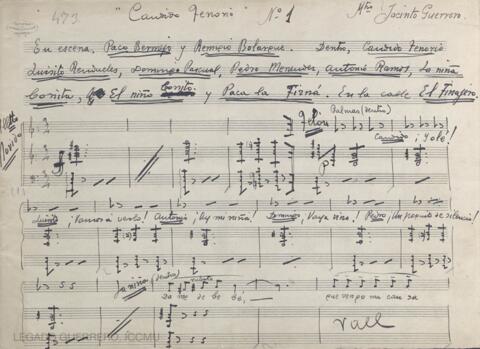 473 "Candido Tenorio" Nº 1 Mtro Jacinto Guerrero.
En escena, Paco Bermejo y Remigio Bolarque. Dentro, Candido Tenorio
Luisito Rendueles, Domingo Pascual, Pedro Menendez, Antonio Ramos, La niña
Bonita, El niño Bonito y Paca la Tirná. En la calle El Finajero.
Movido
Palmas (dentro)
Candido ¡olé!
Luisito ¡Vamos a verlo! Antonio ¡Ay mi niña! Domingo ¡Vaya niña! Pedro ¡Un poquito de silencio!
La niña (dentro)
Da me de be be, que vengo mu can sa
Vall
LEGADO GUERRERO, ICCMU